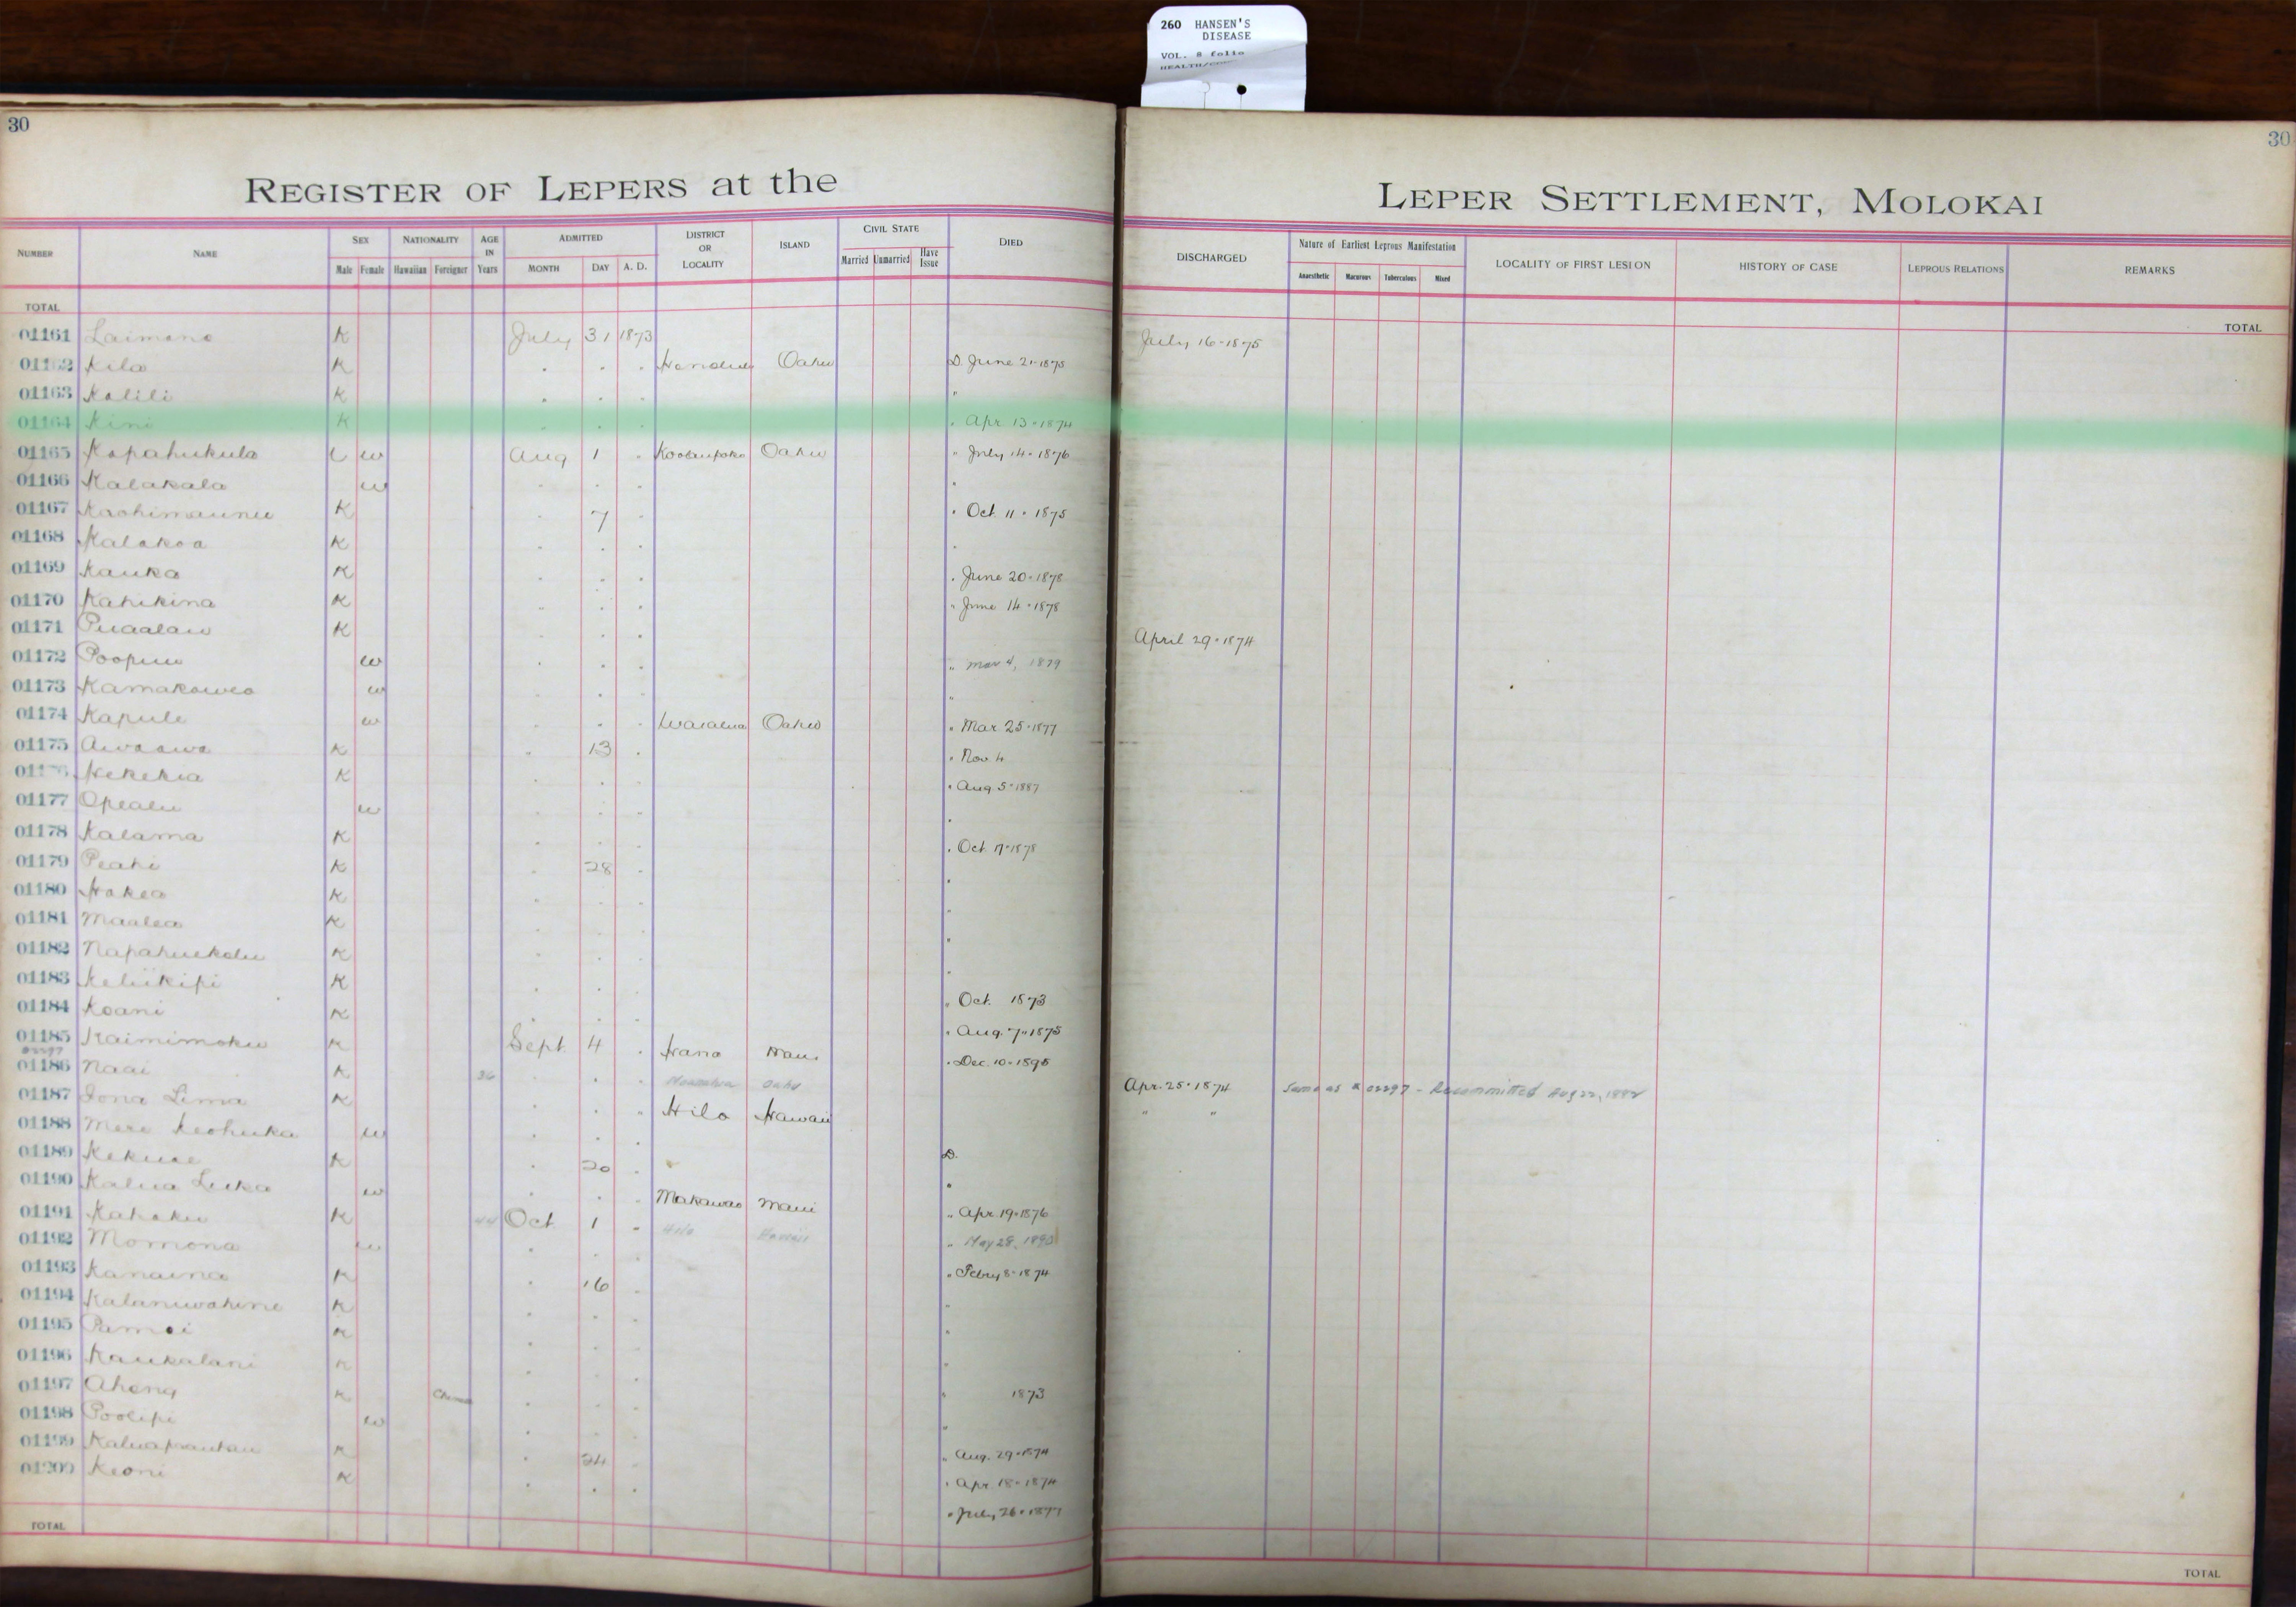 260 HANSEN'S
DISEASE
VOL. 8 folio
30
30
REGISTER OF LEPERS at the LEPER SETTLEMENT, MOLOKAI
NUMBER NAME SEX Male Female NATIONALITY Hawaiian Foreigner AGE IN Years ADMITTED MONTH DAY A. D. DISTRICT OR LOCALITY ISLAND CIVIL STATE Married Unmarried Have Issue DIED DISCHARGED Nature of Earliest Leprous Manifestation Anaesthetic Macurous Tuberculous Mixed LOCALITY OF FIRST LESION HISTORY OF CASE LEPROUS RELATIONS REMARKS
TOTAL TOTAL
01161 Laimana K July 31 1873 July 16-1875
01162 Kila K . . . Honolulu Oahu D. June 21-1875
01163 Kalili K . . "
01164 Kini K . . . " Apr. 13-1874
01165 Kapahukula w Aug 1 . Koolaupoko Oahu " July 14-1876
01166 Kalakala w . . . "
01167 Kaohimaunu K . 7 . " Oct. 11-1875
01168 Kalakoa K . . . "
01169 Kauka K . . . " June 20-1878
01170 Kahikina K . . . " June 14-1878
01171 Puaalau K . . . April 29-1874
01172 Poopuu w . . . " Mar 4, 1879
01173 Kamakaweo w . . . "
01174 Kapule w . . . Waialua Oahu " Mar. 25-1877
01175 Awaawa K . 13 . " Nov. 4
01176 Kekekia K . . . " Aug. 5-1887
01177 Opealu w . . . "
01178 Kalama K . . . " Oct. 17-1878
01179 Peahi K . 28 . "
01180 Hakea K . . . "
01181 Maalea K . . . "
01182 Napahuekolu K . . . "
01183 Keliikipi K . . . " Oct. 1873
01184 Koani K . . . " Aug. 7-1875
01185 Kaimimoku K Sept. 4 . Hana Maui " Dec. 10-1895
01186 Naai K 36 . . . Oahu Apr. 25-1874 Same as # 02297 - Recommitted Aug 22, 1882
01187 Iona Lima K . . . Hilo Hawaii " "
01188 Mere Keohuka w . . .
01189 Kekuae K . 20 . D.
01190 Kalua Luka w . . . Makawao Maui "
01191 Kahaku K 44 Oct 1 . Hilo Hawaii " Apr. 19-1876
01192 Momona w . . " May 28, 1890
01193 Kanaina K . 16 . " Febry 8-1874
01194 Kalaniwahine K . . . "
01195 K . . . "
01196 Kaukalani K . . . "
01197 Aheng K . . . " 1873
01198 Poolipi w . . . "
01199 K . 24 . " Aug. 29-1874
01200 Keoni K . . . " Apr. 18-1874
" July 26-1877
TOTAL TOTAL